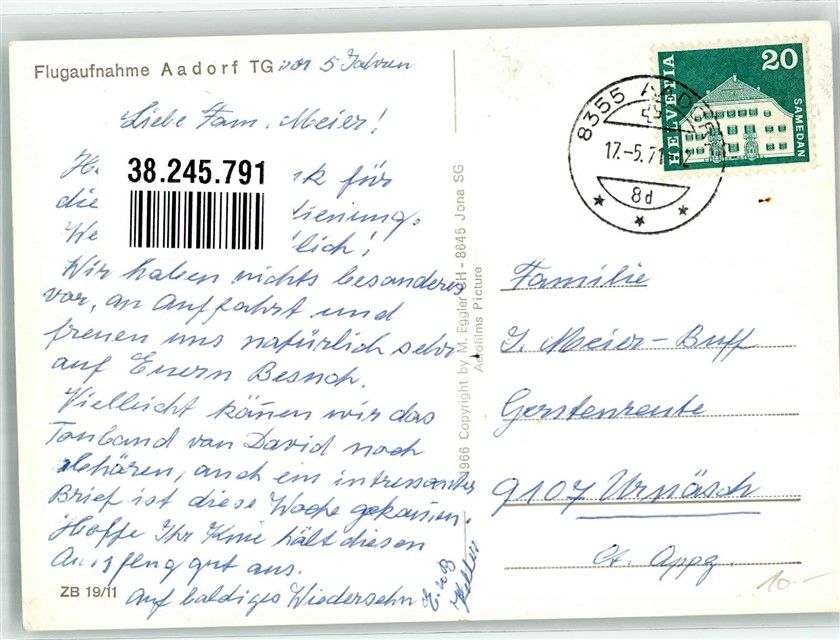 Flugaufnahme Aadorf TG vor 5 Jahren
Liebe Fam. Meier!
38.245.791
für
die
We
Wir haben nichts besonderes
vor, an Auffahrt und
freuen uns natürlich sehr
auf Euern Besuch.
Vielleicht können wir das
Tonband von David noch
abhören, auch ein intressanter
Brief ist diese Woche gekommen.
Hoffe Ihr Knie hält diesen
gut aus.
Auf baldiges Wiedersehn
E. &
Keller
ZB 19/11
1966 Copyright by M. Eggler CH-8645 Jona SG
Aerofilms Picture
HELVETIA
20
SAMEDAN
8355 AADORF
17.-5.71
8d
Familie
J. Meier-Buff
9107 Urnäsch
Ct. Appz.
10.-